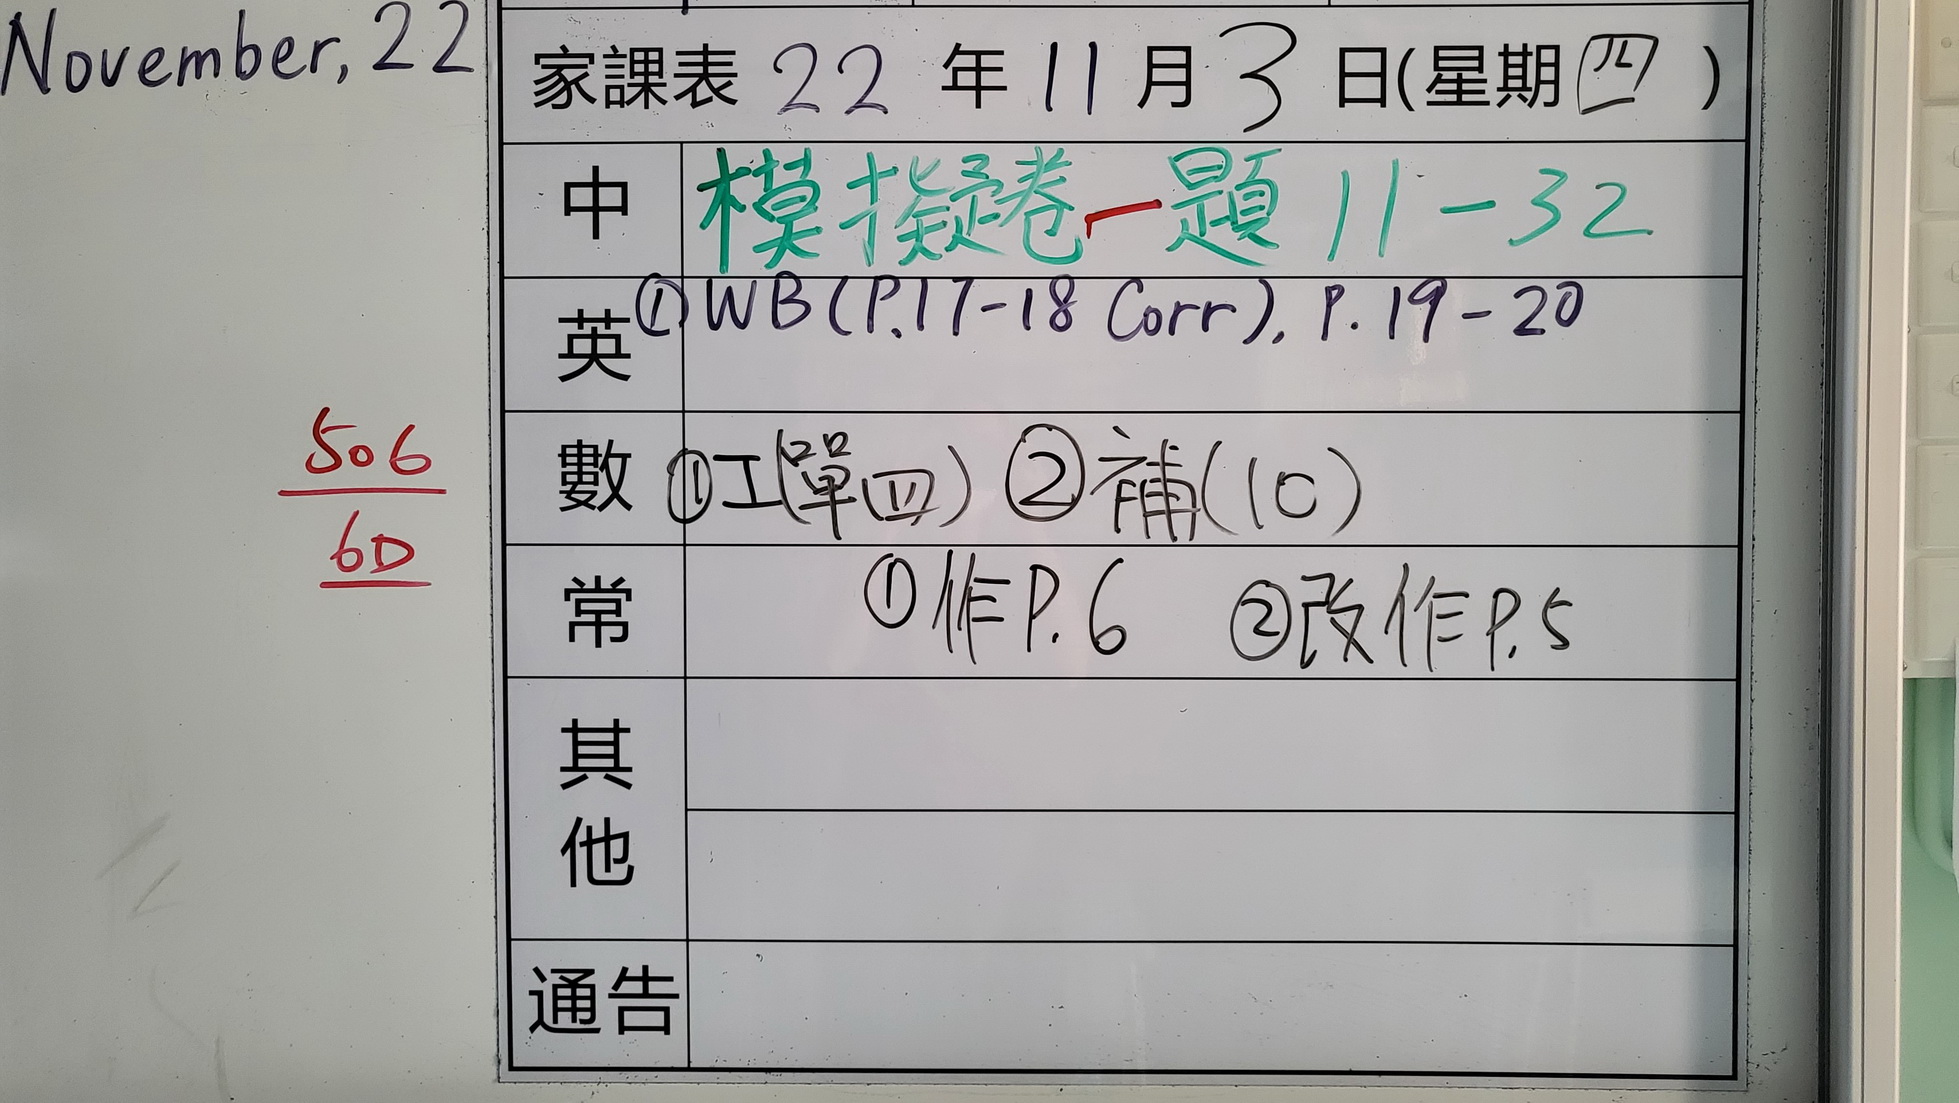 November, 22
家課表 22 年 11 月 3 日(星期四)
中 模擬卷一題 11-32
英 ①WB(P.17-18 Corr), P. 19-20
數 ①工(單四) ②補(10)
506
6D
常 ①作P.6 ②改作P.5
其他
通告